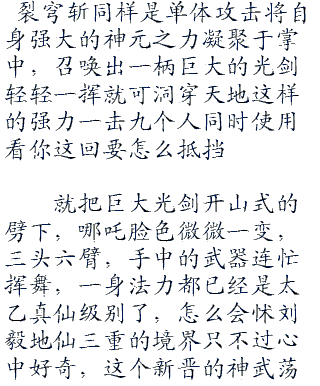 裂穹斩同样是单体攻击将自
身强大的神元之力凝聚于掌
中，召唤出一柄巨大的光剑
轻轻一挥就可洞穿天地这样
的强力一击九个人同时使用
看你这回要怎么抵挡
就把巨大光剑开山式的
劈下，哪吒脸色微微一变，
三头六臂，手中的武器连忙
挥舞，一身法力都已经是太
乙真仙级别了，怎么会怵刘
毅地仙三重的境界只不过心
中好奇，这个新晋的神武荡